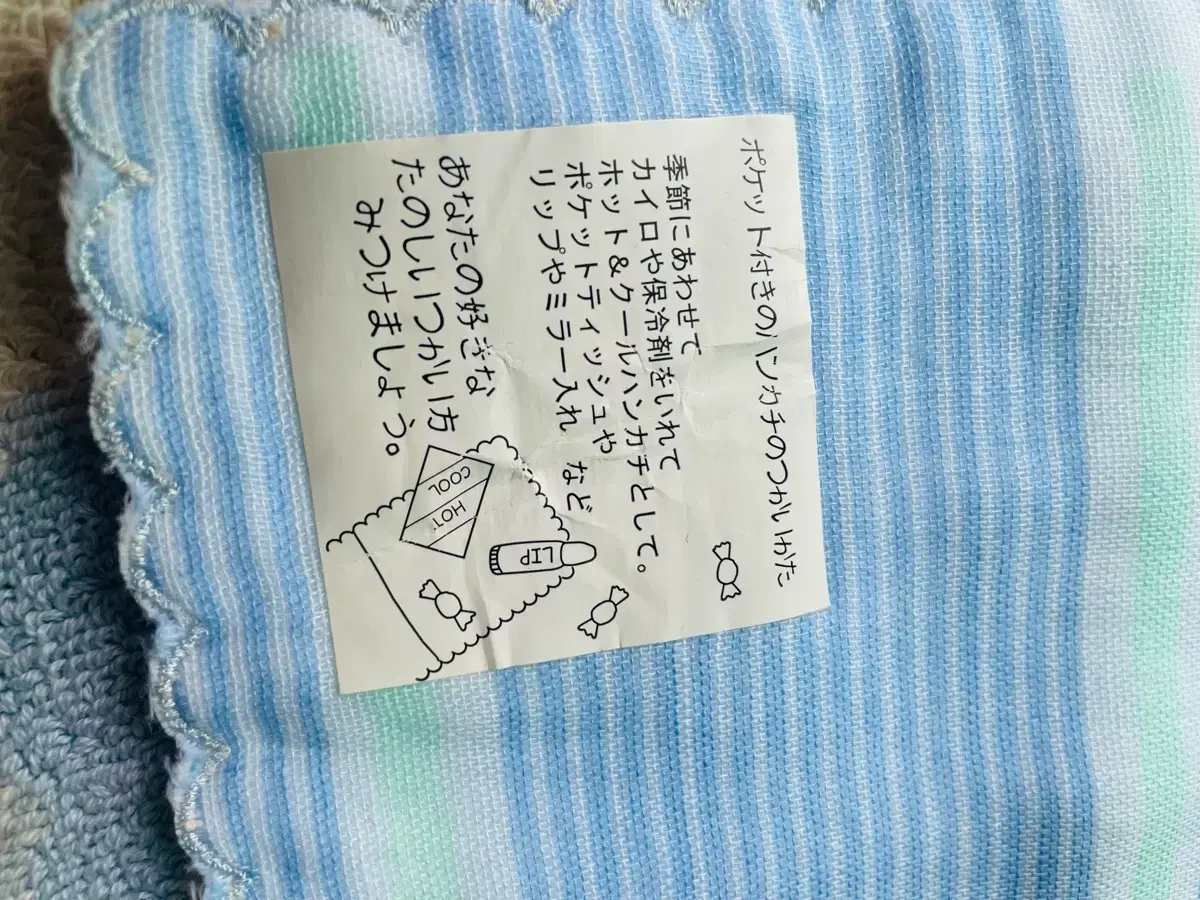 ポケット付きのハンカチのつかいかた
季節にあわせて
カイロや保冷剤をいれて
ホット&クールハンカチとして。
ポケットティッシュや
リップやミラー入れ など
あなたの好きな
たのしいつかい方
みつけましょう。
COOL
HOT
LIP